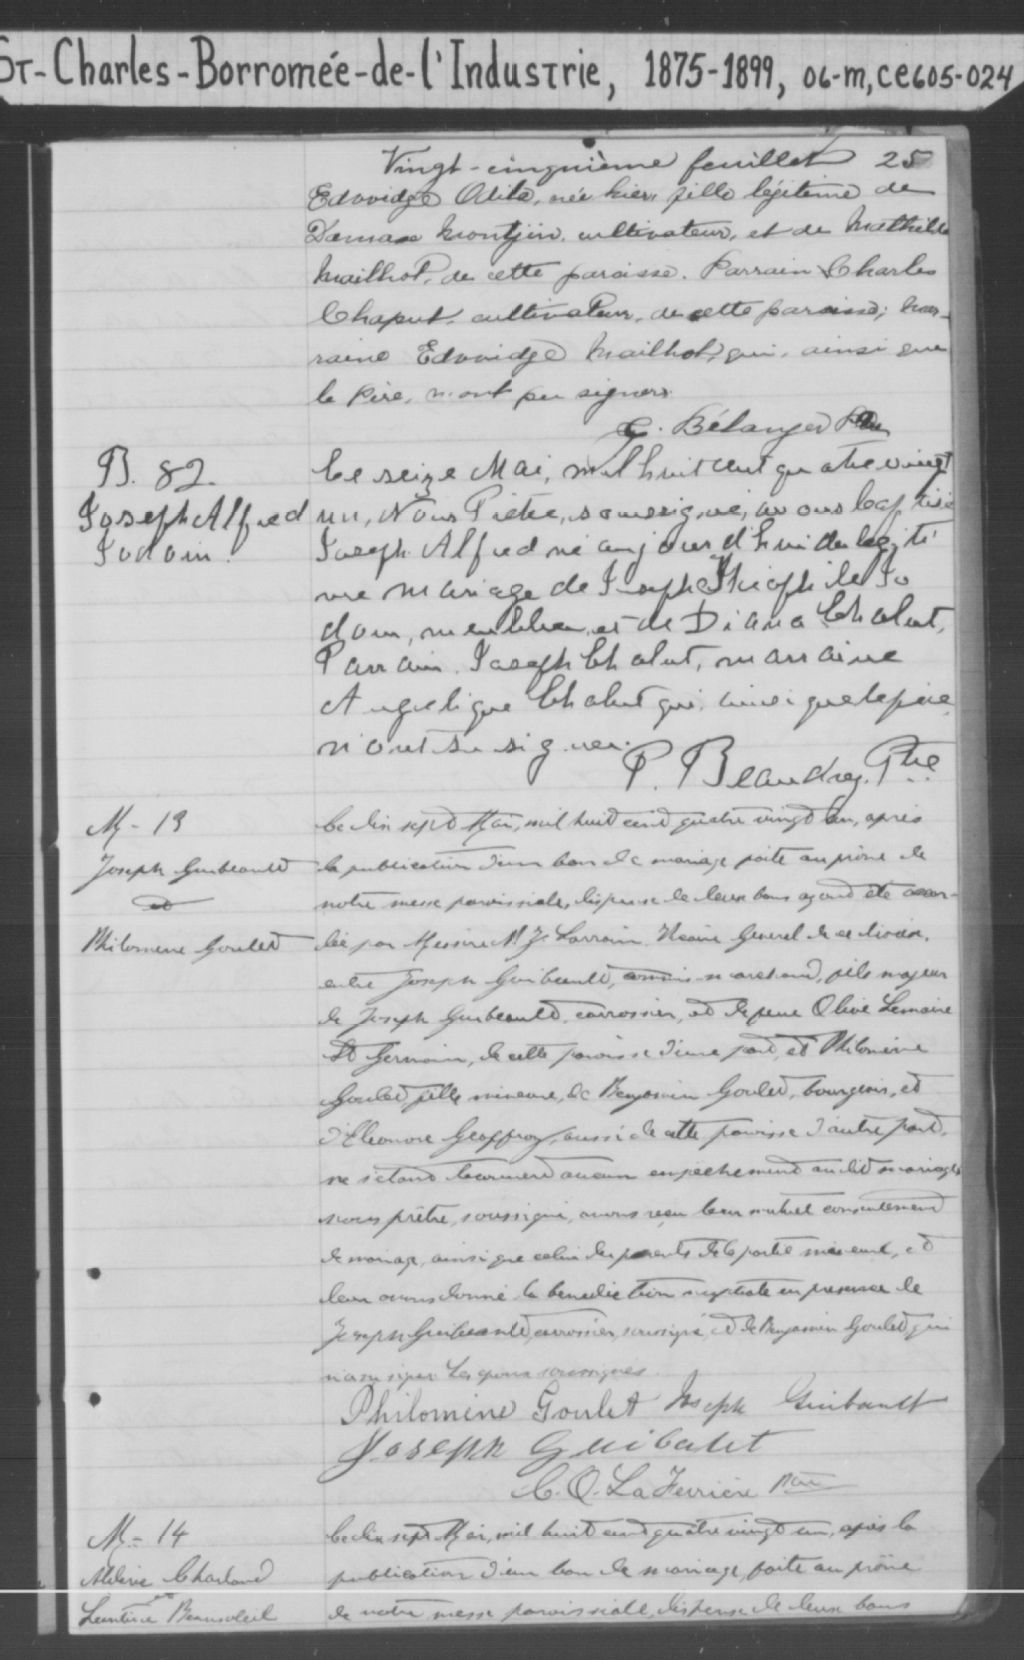 St-Charles-Borromée-de-l'Industrie, 1875-1899, 06-m, CE605-024
Vingt-cinquième feuillet 25
Edwidge Odila, née hier, fille légitime de
Damase Montjin, cultivateur, et de Mathilde
Mailhot, de cette paroisse. Parrain Charles
Chaput, cultivateur, de cette paroisse; mar-
raine Edwidge Mailhot, qui, ainsi que
le Père, n'ont pu signer.
Bélanger Ptre
B. 82.
Joseph Alfred
Jodoin.
Le seize Mai, mil huit cent quatre vingt
un, Nous Prêtre, soussigné, avons baptisé
Joseph Alfred né aujourd'hui du légiti
me mariage de Joseph Théophile Jo
doin, meublier et de Diana Chalut,
Parrain Joseph Chalut, marraine
Angelique Chalut qui, ainsi que le père
n'ont su signer.
P. Beaudry, Ptre
M - 13
Joseph Guibeault
et
Philomene Goulet
Le dix sept Mai, mil huit cent quatre vingt un, après
la publication d'un ban de mariage faite au prône de
notre messe paroissiale, dispense de deux bans ayant été accor-
dée par Messire Lorrain Vicaire General de ce diocèse,
entre Joseph Guibeault, commis-marchand, fils majeur
de Joseph Guibeault, carrossier, et de feue Olive Lemaire
St Germain, de cette paroisse d'une part, et Philomène
Goulet fille mineure, de Benjamin Goulet, bourgeois, et
d'Eleonore Geoffroy, aussi de cette paroisse d'autre part,
ne s'étant découvert aucun empêchement au dit mariage
nous prêtre, soussigné, avons reçu leur mutuel consentement
de mariage, ainsi que celui des parents de la partie mineure, et
leur avons donné la benediction nuptiale en presence de
Joseph Guibeault, carrossier, soussigné, et de Benjamin Goulet qui
n'a su signer. Les époux soussignés.
Philomène Goulet Joseph Guibault
Joseph Guibault
C. O. LaFerriere Ptre
M - 14
Charland
et
Beausoleil
Le dix sept Mai, mil huit cent quatre vingt un, après la
publication d'un ban de mariage, faite au prône
de notre messe paroissiale, dispense de deux bans